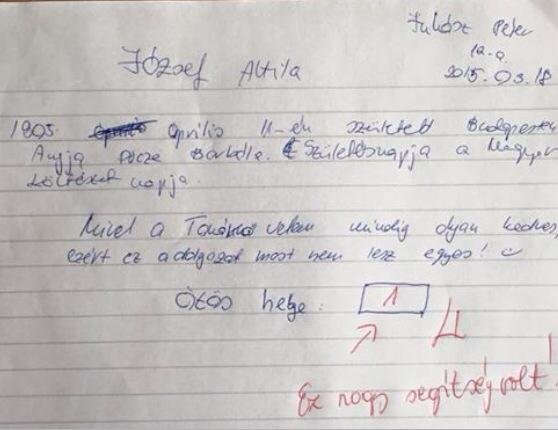 Juhász Péter
12.a
2015.03.18
József Attila
1905. április 11-én született Budapesten
Anyja Pőcze Borbála. Születésnapja a Magyar
költészet napja.
Mivel a Tanárnő velem mindig olyan kedves,
ezért ez a dolgozat most nem lesz egyes! :)
Ötös helye: 1
Ez nagy segítség volt!